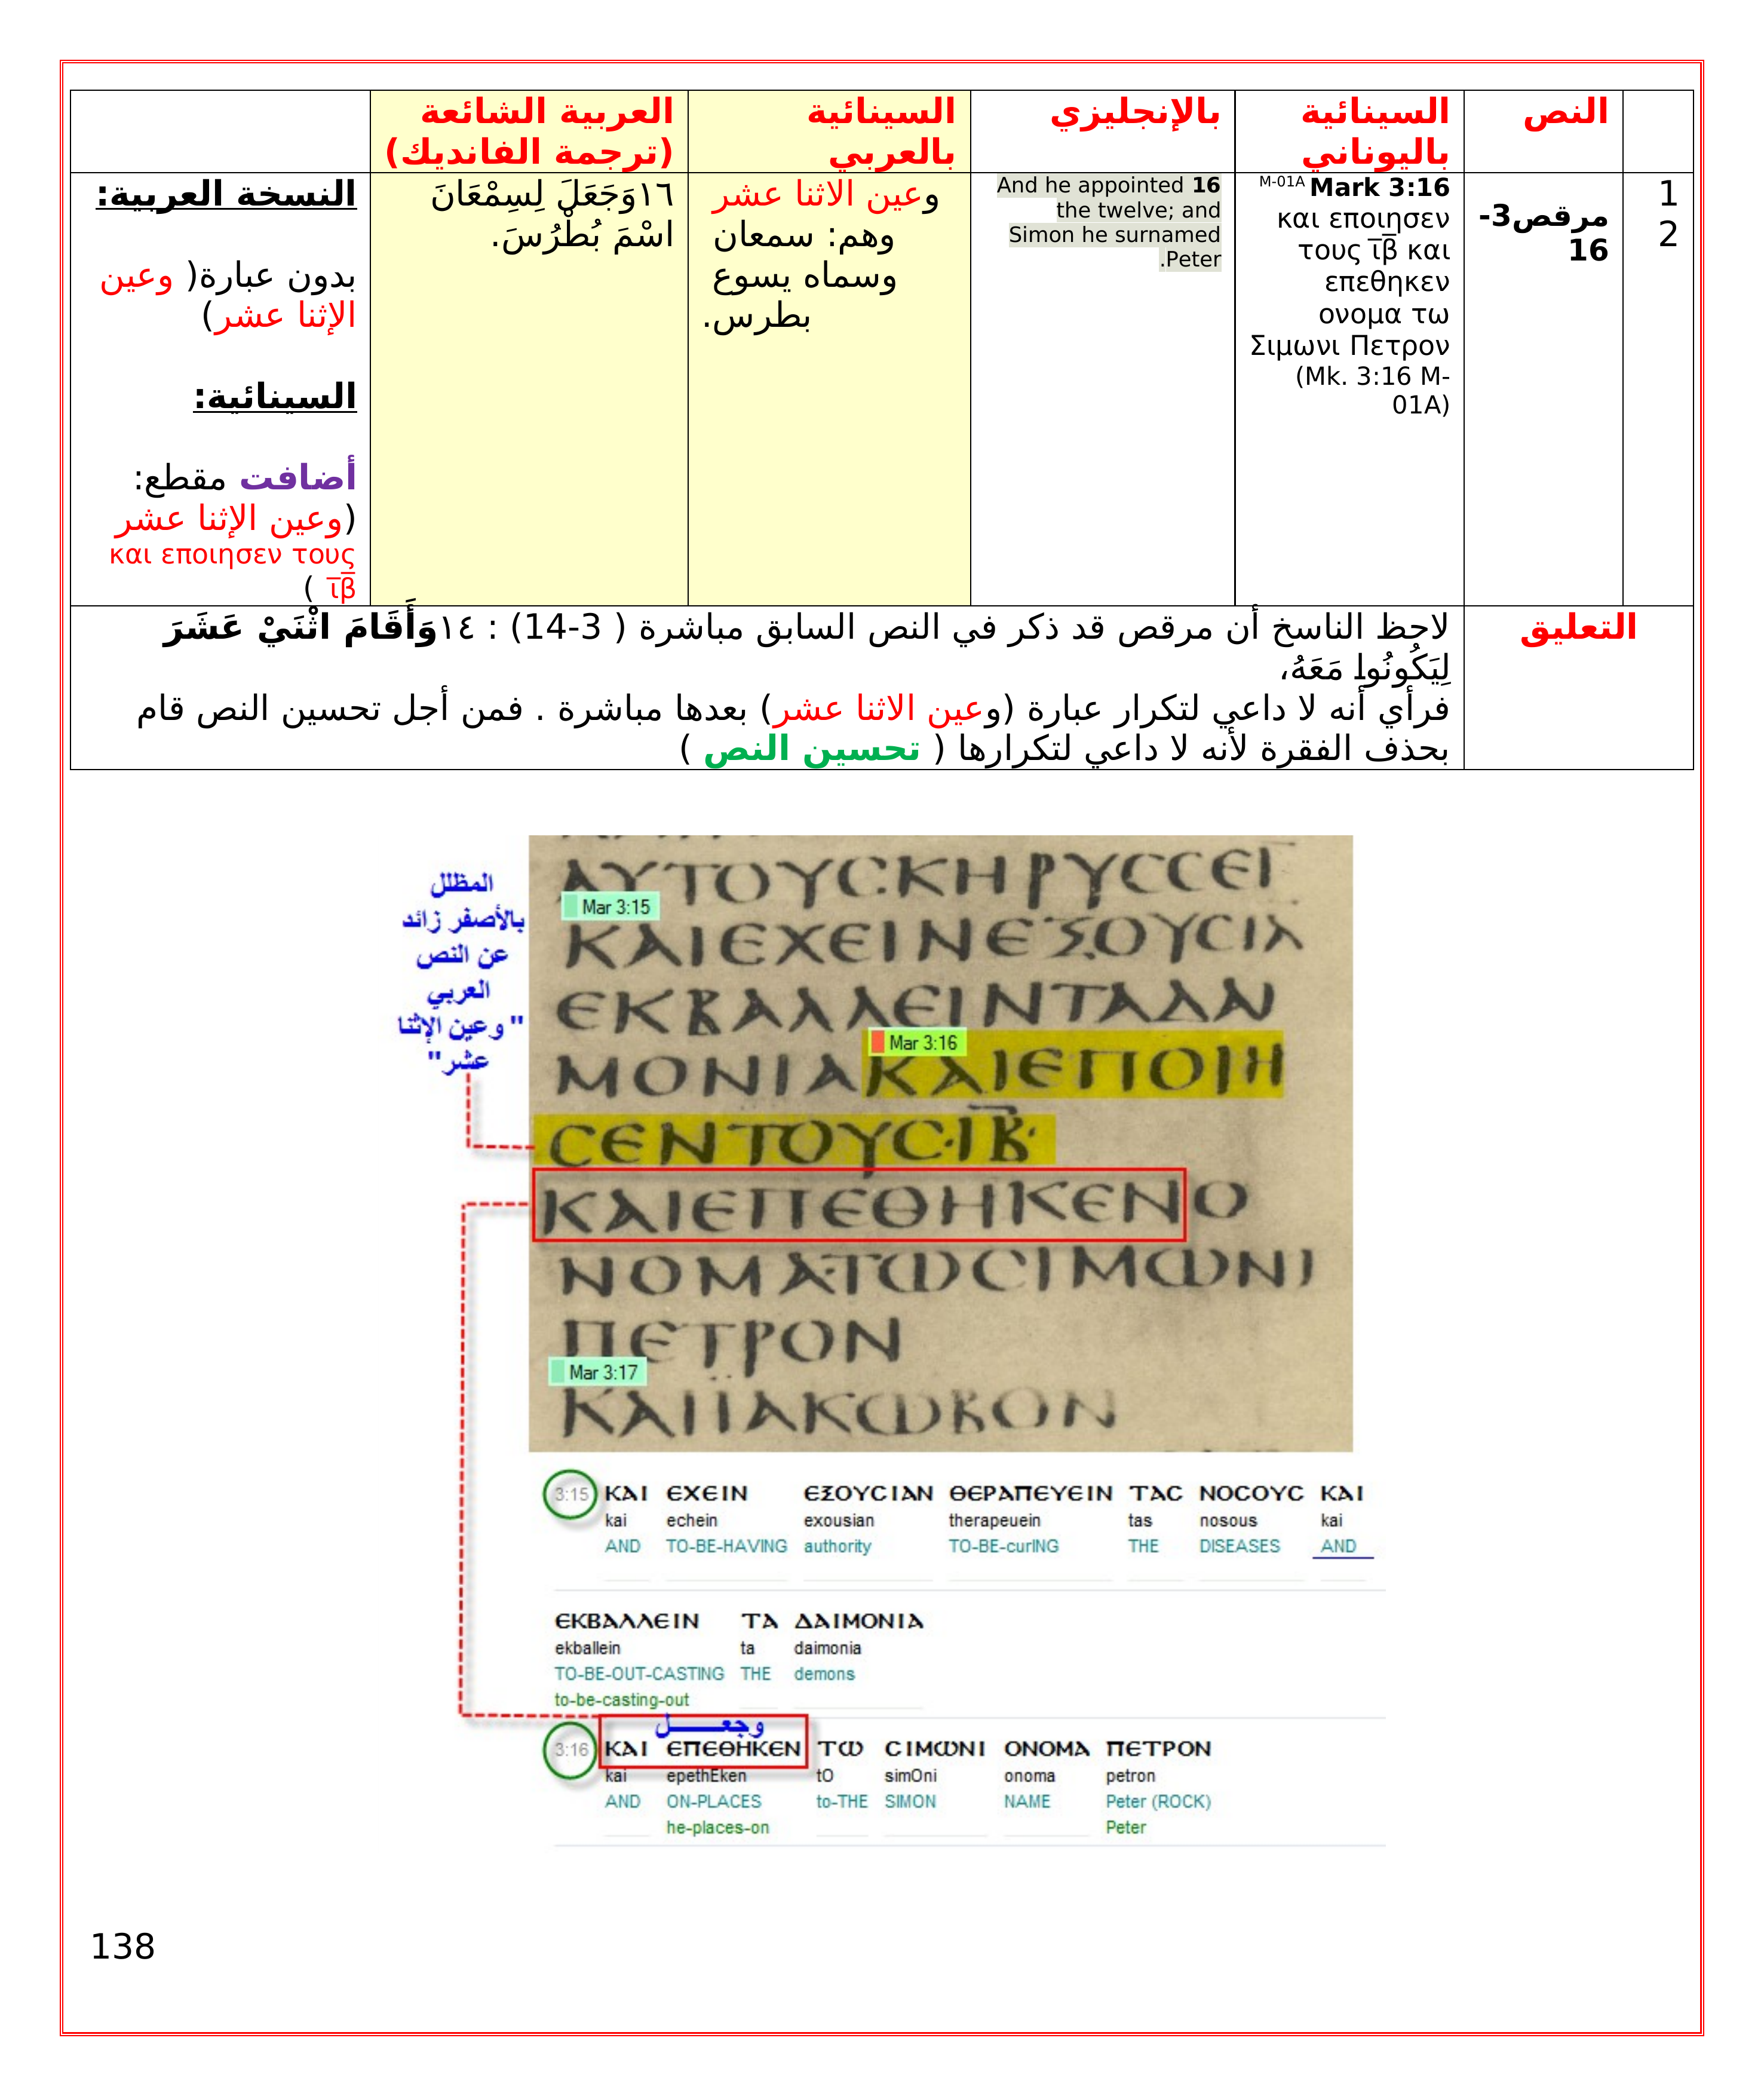 النص
السينائية
باليوناني
بالإنجليزي
السينائية
بالعربي
العربية الشائعة
(ترجمة الفانديك)
1
2
مرقص3-
16
M-01A Mark 3:16
και εποιησεν
τους ι̅β̅ και
επεθηκεν
ονομα τω
Σιμωνι Πετρον
(Mk. 3:16 M-
01A)
And he appointed 16
the twelve; and
Simon he surnamed
.Peter
وعين الاثنا عشر
وهم: سمعان
وسماه يسوع
بطرس.
١٦وَجَعَلَ لِسِمْعَانَ
اسْمَ بُطْرُسَ.
النسخة العربية:
بدون عبارة( وعين
الإثنا عشر)
السينائية:
أضافت مقطع:
(وعين الإثنا عشر
και εποιησεν τους
ι̅β̅ )
التعليق
لاحظ الناسخ أن مرقص قد ذكر في النص السابق مباشرة ( 3-14) : ١٤وَأَقَامَ اثْنَيْ عَشَرَ
لِيَكُونُوا مَعَهُ،
فرأي أنه لا داعي لتكرار عبارة (وعين الاثنا عشر) بعدها مباشرة . فمن أجل تحسين النص قام
بحذف الفقرة لأنه لا داعي لتكرارها ( تحسين النص )
المظلل
بالأصفر زائد
عن النص
العربي
"وعين الإثنا
عشر"
ΑΥΤΟΥϹΚΗΡΥϹϹΕΙ
Mar 3:15
ΚΑΙΕΧΕΙΝΕΞΟΥϹΙΑ
ΕΚΒΑΛΛΕΙΝΤΑΔΑΙ
Mar 3:16
ΜΟΝΙΑΚΑΙΕΠΟΙΗ
ϹΕΝΤΟΥϹ·ΙΒ·
ΚΑΙΕΠΕΘΗΚΕΝΟ
ΝΟΜΑΤΩϹΙΜΩΝΙ
ΠΕΤΡΟΝ
Mar 3:17
ΚΑΙΪΑΚΩΒΟΝ
3:15 ΚΑΙ ΕΧΕΙΝ ΕΞΟΥϹΙΑΝ ΘΕΡΑΠΕΥΕΙΝ ΤΑϹ ΝΟϹΟΥϹ ΚΑΙ
kai echein exousian therapeuein tas nosous kai
AND TO-BE-HAVING authority TO-BE-curING THE DISEASES AND
ΕΚΒΑΛΛΕΙΝ ΤΑ ΔΑΙΜΟΝΙΑ
ekballein ta daimonia
TO-BE-OUT-CASTING THE demons
to-be-casting-out
وجعـــل
3:16 ΚΑΙ ΕΠΕΘΗΚΕΝ ΤΩ ϹΙΜΩΝΙ ΟΝΟΜΑ ΠΕΤΡΟΝ
kai epethEken tO simOni onoma petron
AND ON-PLACES to-THE SIMON NAME Peter (ROCK)
he-places-on Peter
138